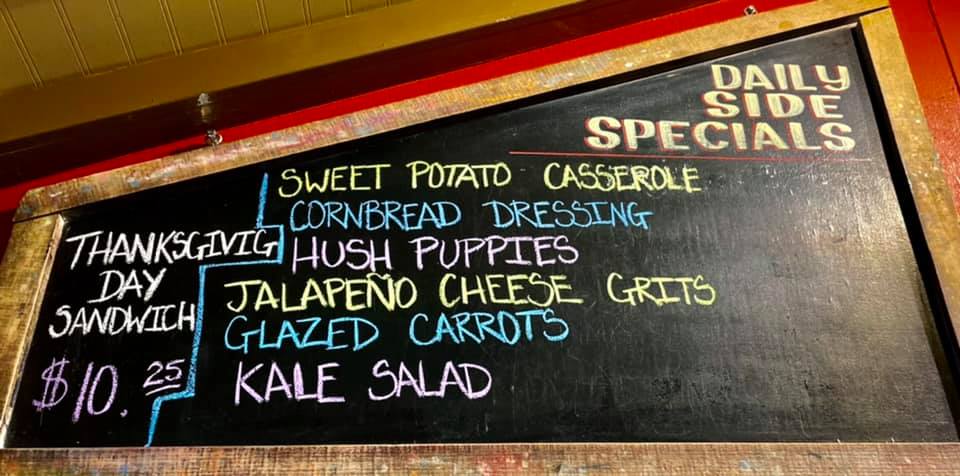 DAILY
SIDE
SPECIALS
SWEET POTATO CASSEROLE
CORNBREAD DRESSING
HUSH PUPPIES
JALAPEÑO CHEESE GRITS
GLAZED CARROTS
KALE SALAD
THANKSGIVIG
DAY
SANDWICH
$10.25